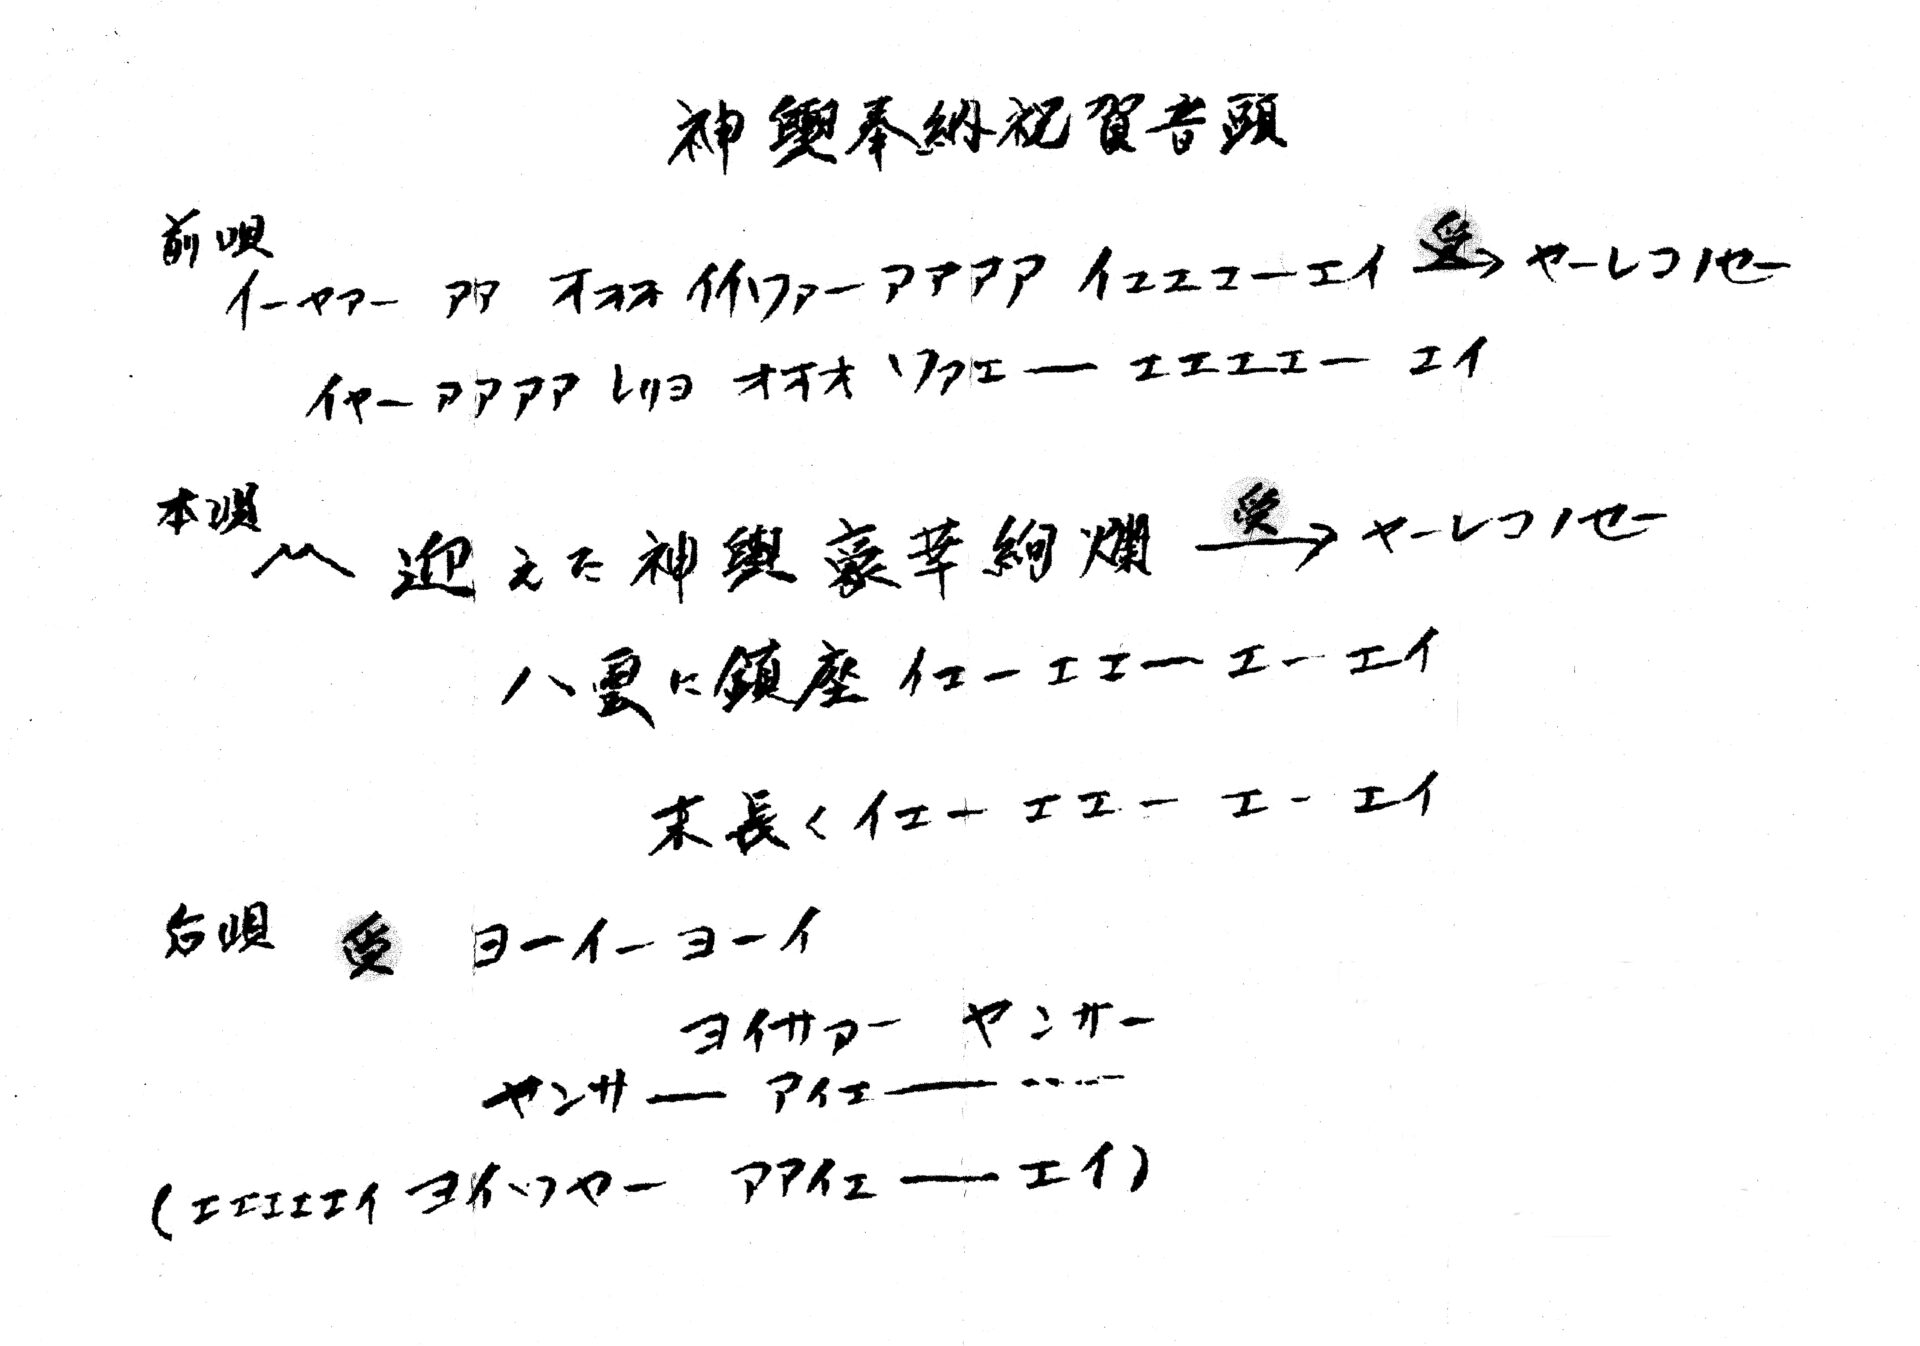 神輿奉納祝賀音頭
前唄
イーヤァー アア オオオ イイソァー アアアア イエエエーエイ 受→ ヤーレコノセー
イヤーアアアア レソヨ オオオ ソァエー エエエエー エイ
本唄
〽 迎えた神輿豪華絢爛 受→ ヤーレコノセー
八雲に鎮座 イエーエエーエーエイ
末長く イエーエエーエーエイ
后唄 受 ヨーイーヨーイ
ヨイサァー ヤンサー
ヤンサー アイエー‥‥
(エエエエエイ ヨイソヤー アアイエー エイ)